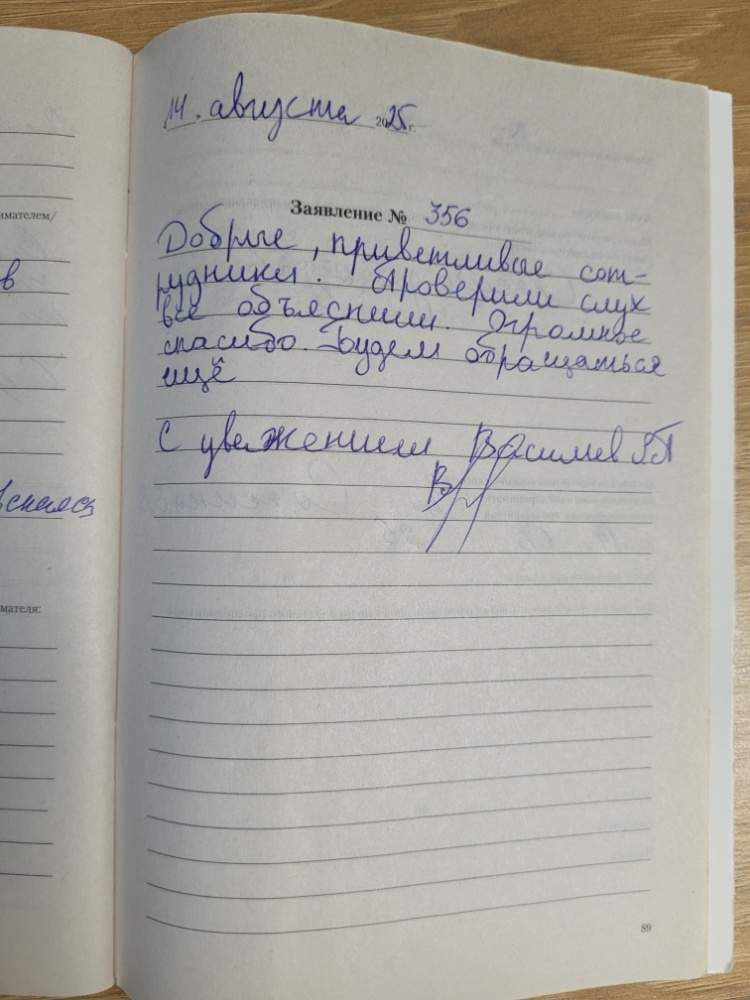 14. августа 2025г.
Заявление № 356
Добрые, приветливые сот-
рудники. Проверили слух
все объяснили. Огромное
спасибо. Будем обращаться
ещё
С уважением Васильев
имателем/
в
мателя:
89